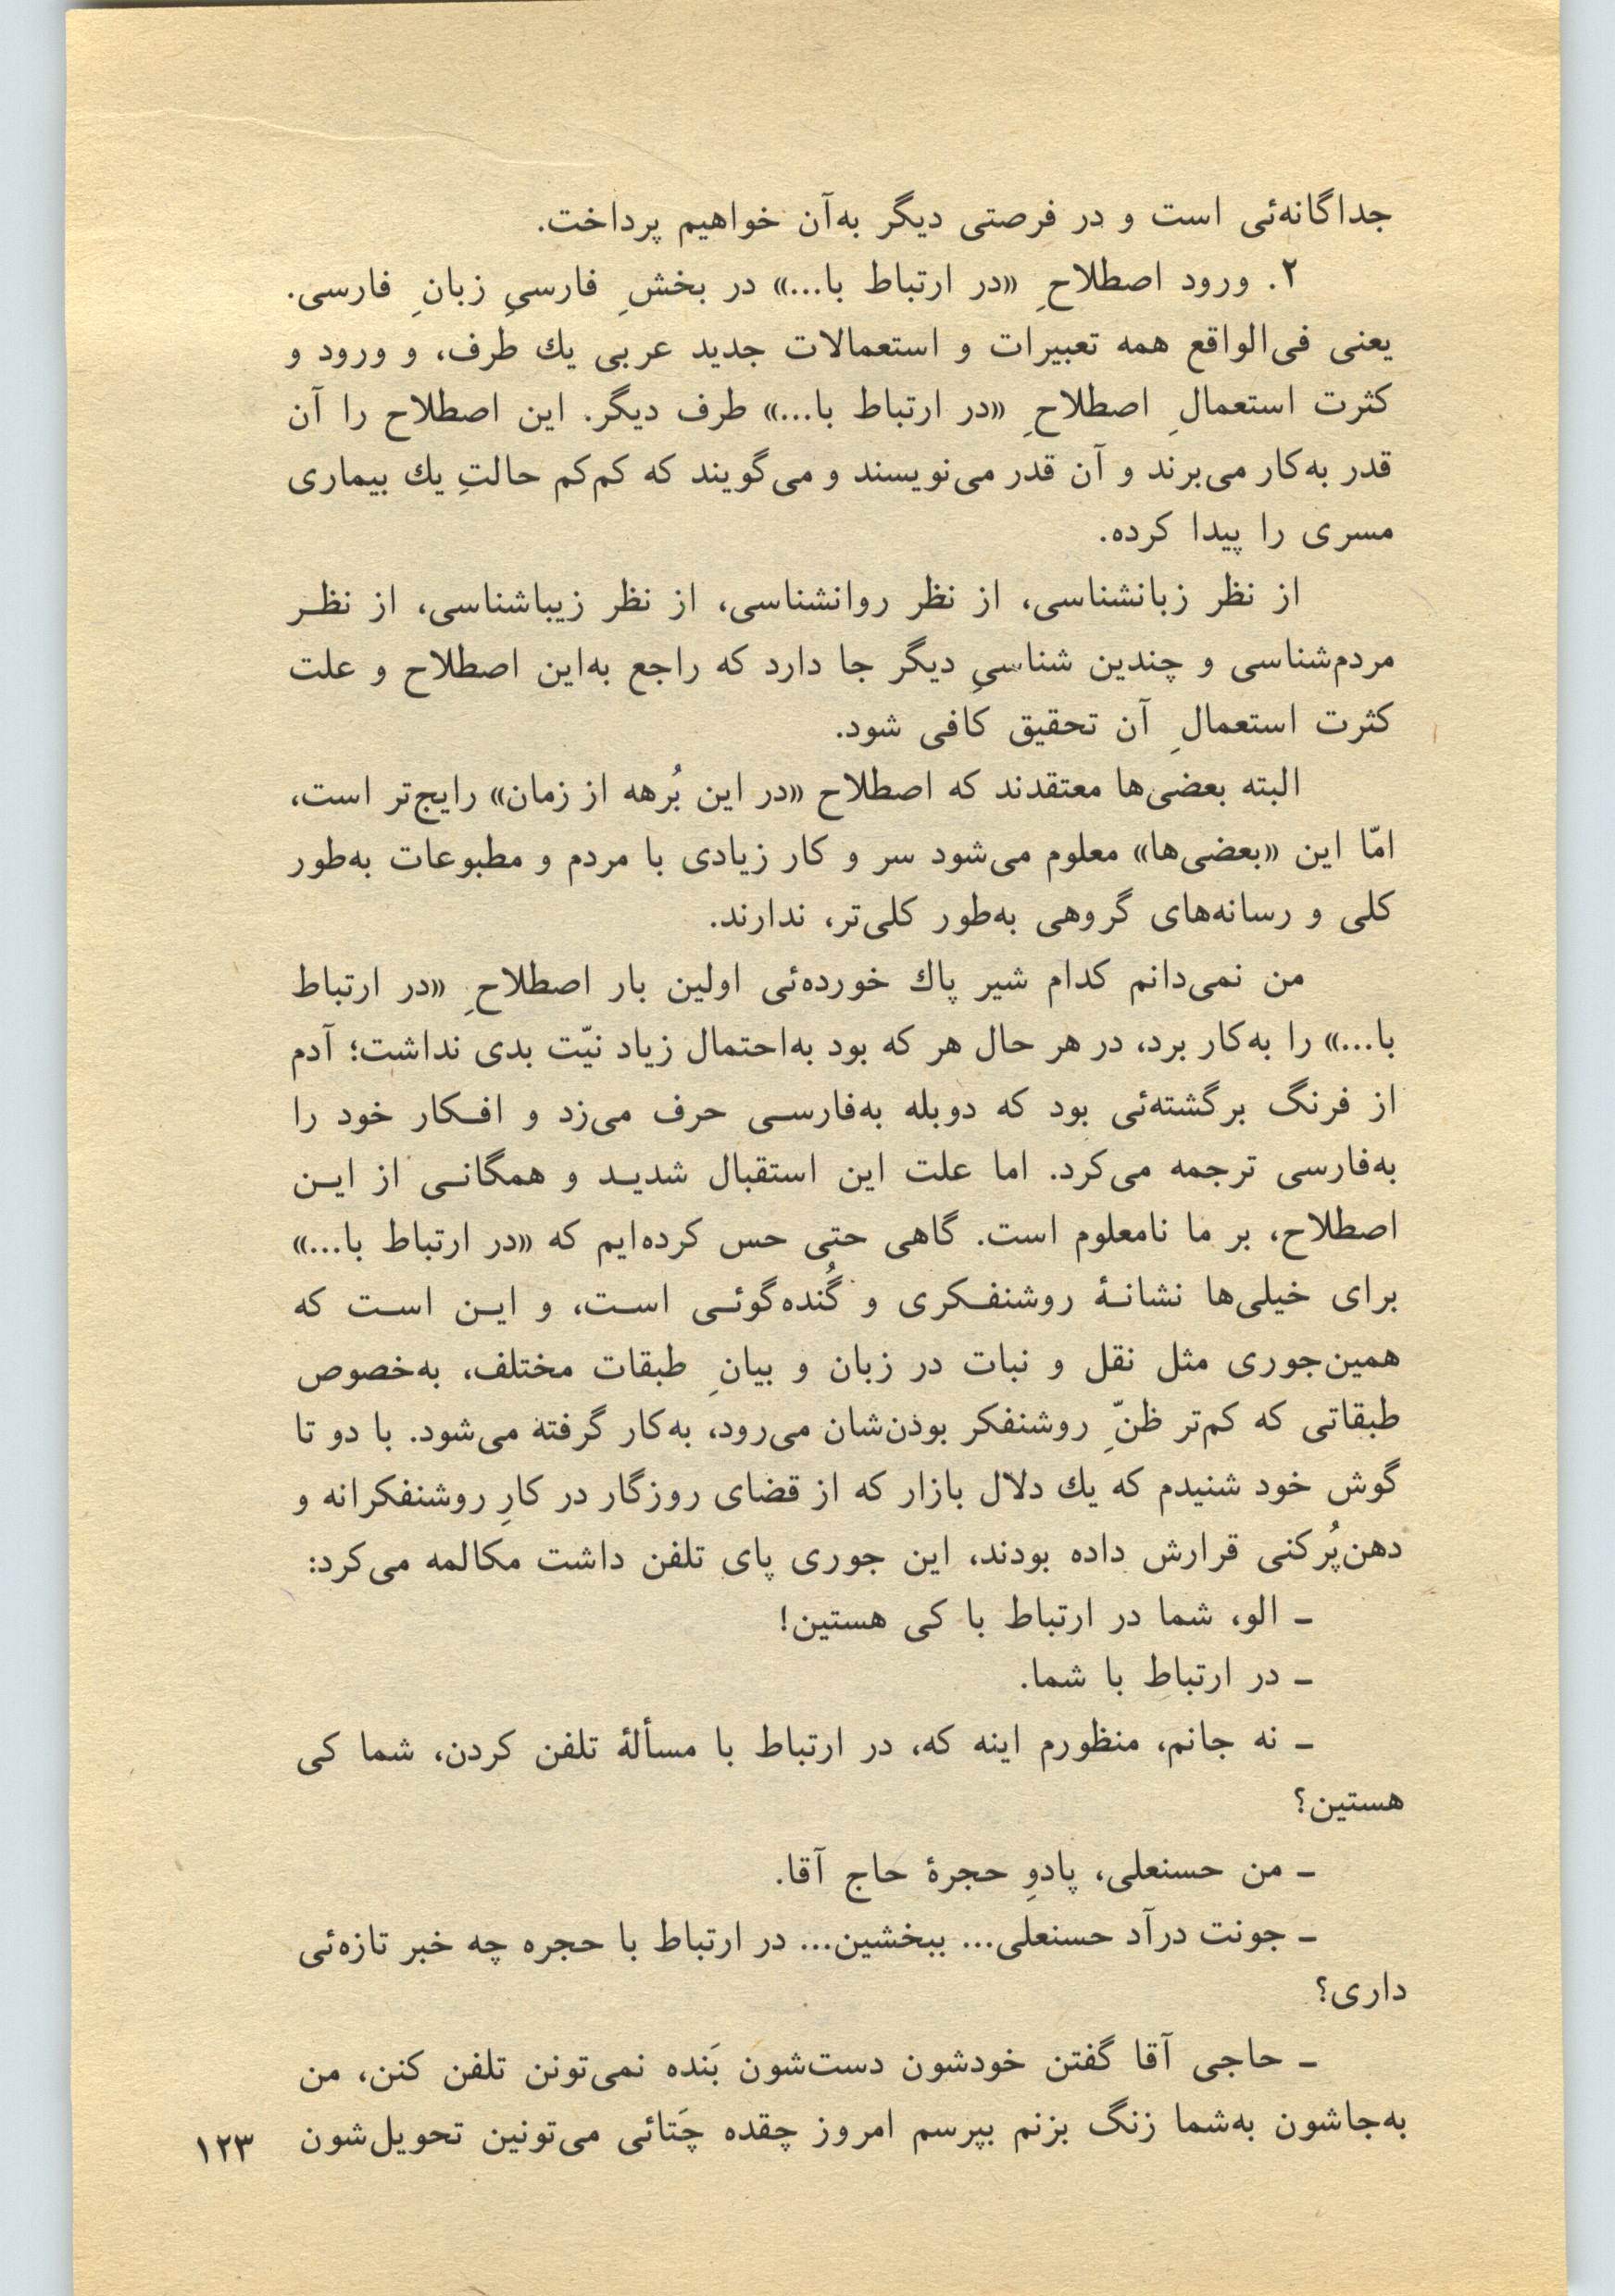 جداگانه‌ئی است و در فرصتی دیگر به‌آن خواهیم پرداخت.
۲. ورود اصطلاحِ «در ارتباط با...» در بخشِ فارسیِ زبانِ فارسی.
یعنی فی‌الواقع همه تعبیرات و استعمالات جدید عربی یك طرف، و ورود و
کثرت استعمالِ اصطلاحِ «در ارتباط با...» طرف دیگر. این اصطلاح را آن
قدر به‌کار می‌برند و آن قدر می‌نویسند و می‌گویند که کم‌کم حالتِ یك بیماری
مسری را پیدا کرده.
از نظر زبانشناسی، از نظر روانشناسی، از نظر زیباشناسی، از نظـر
مردم‌شناسی و چندین شناسیِ دیگر جا دارد که راجع به‌این اصطلاح و علت
کثرت استعمالِ آن تحقیق کافی شود.
البته بعضی‌ها معتقدند که اصطلاح «در این بُرهه از زمان» رایج‌تر است،
امّا این «بعضی‌ها» معلوم می‌شود سر و کار زیادی با مردم و مطبوعات به‌طور
کلی و رسانه‌های گروهی به‌طور کلی‌تر، ندارند.
من نمی‌دانم کدام شیر پاك خورده‌ئی اولین بار اصطلاحِ «در ارتباط
با...» را به‌کار برد، در هر حال هر که بود به‌احتمال زیاد نیّت بدی نداشت؛ آدم
از فرنگ برگشته‌ئی بود که دوبله به‌فارسـی حرف می‌زد و افـکار خود را
به‌فارسی ترجمه می‌کرد. اما علت این استقبال شدیـد و همگانـی از ایـن
اصطلاح، بر ما نامعلوم است. گاهی حتی حس کرده‌ایم که «در ارتباط با...»
برای خیلی‌ها نشانـهٔ روشنفـکری و گُنده‌گوئـی اسـت، و ایـن اسـت که
همین‌جوری مثل نقل و نبات در زبان و بیانِ طبقات مختلف، به‌خصوص
طبقاتی که کم‌تر ظنِّ روشنفکر بودن‌شان می‌رود، به‌کار گرفته می‌شود. با دو تا
گوش خود شنیدم که یك دلال بازار که از قضای روزگار در کارِ روشنفکرانه و
دهن‌پُرکنی قرارش داده بودند، این جوری پای تلفن داشت مکالمه می‌کرد:
ـ الو، شما در ارتباط با کی هستین!
ـ در ارتباط با شما.
ـ نه جانم، منظورم اینه که، در ارتباط با مسألهٔ تلفن کردن، شما کی
هستین؟
ـ من حسنعلی، پادوِ حجرهٔ حاج آقا.
ـ جونت درآد حسنعلی... ببخشین... در ارتباط با حجره چه خبر تازه‌ئی
داری؟
ـ حاجی آقا گفتن خودشون دست‌شون بَنده نمی‌تونن تلفن کنن، من
به‌جاشون به‌شما زنگ بزنم بپرسم امروز چقده چَتائی می‌تونین تحویل‌شون
۱۲۳